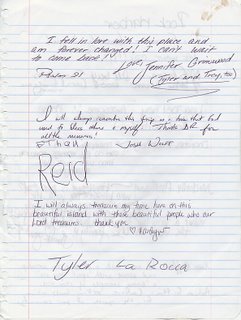 I fell in love with this place and
am forever changed! I can't wait
to come back!
Love, Jennifer
Psalm 91
(Tyler and Troy, too)
I will always remember this
used to bless others & myself. Thanks for
all the memories!
Ethan
Reid
I will always treasure my time here on this
beautiful island with these beautiful people who our
Lord treasures. thank you.
Tyler La Rocca